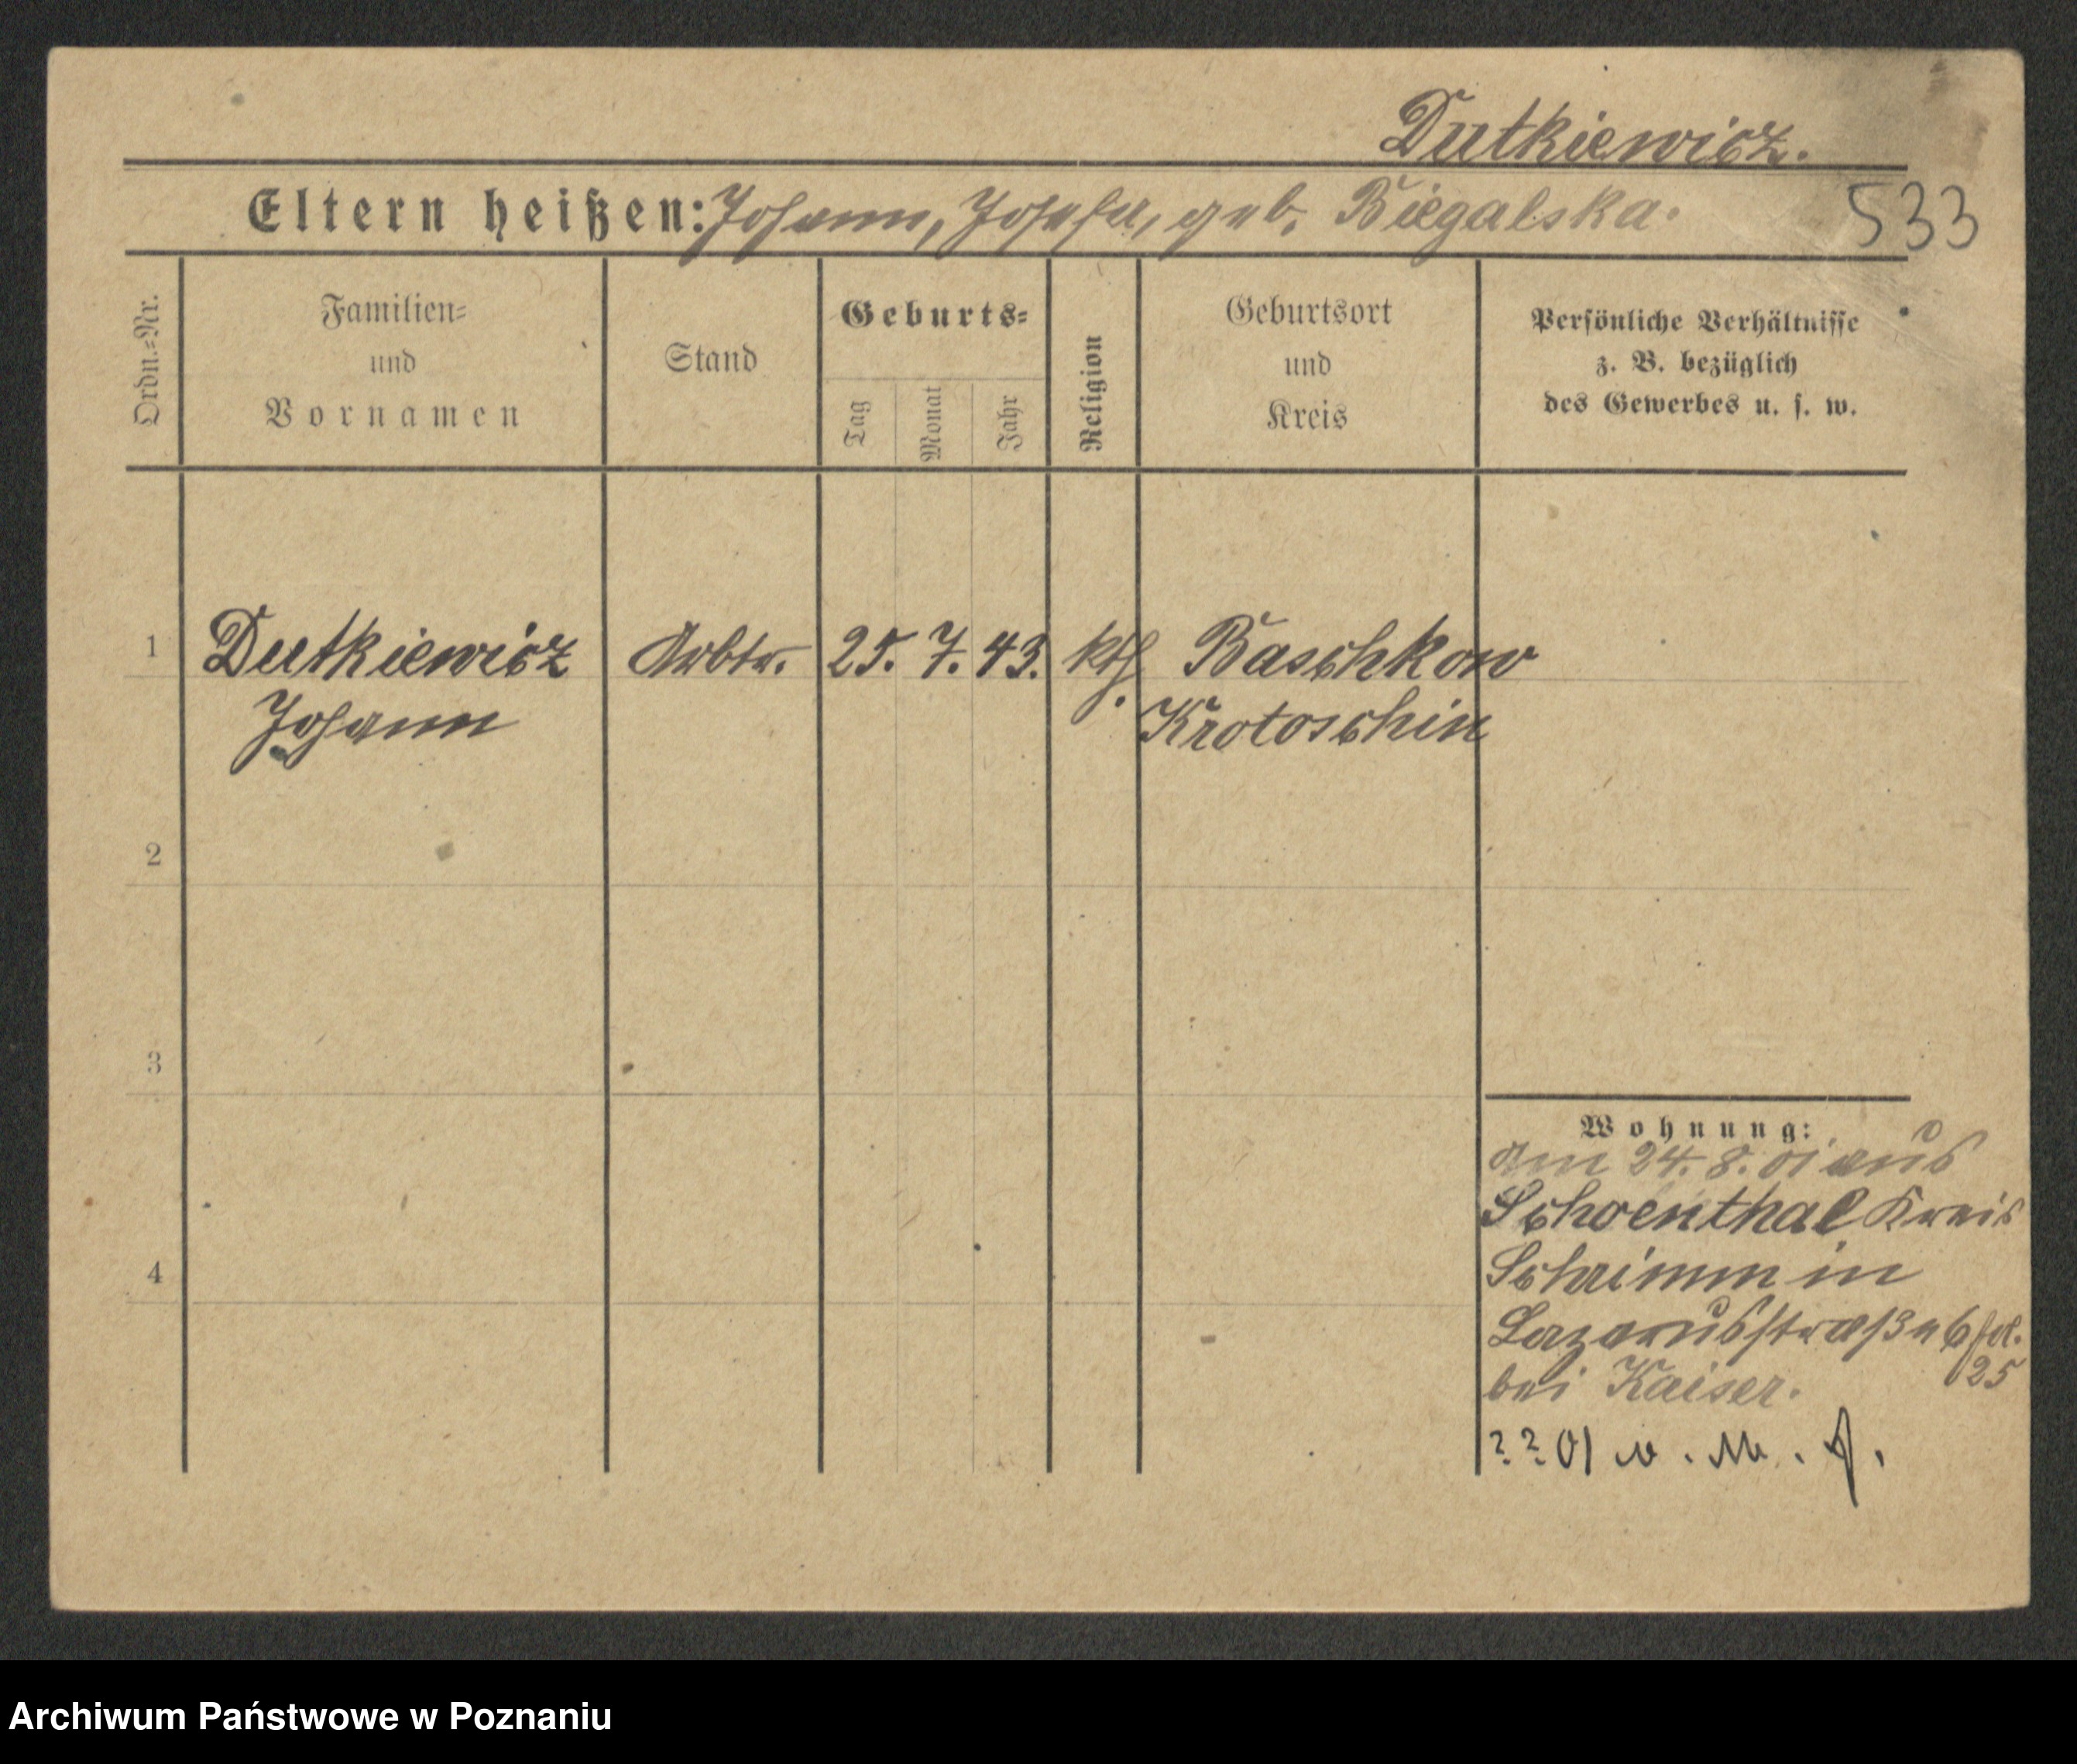 Dutkiewicz.
Eltern heißen: Johann, Josefa, geb. Biegalska.
533
Ordn.-Nr.
Familien-
und
Vornamen
Stand
Geburts-
Tag
Monat
Jahr
Religion
Geburtsort
und
Kreis
Persönliche Verhältnisse
z. B. bezüglich
des Gewerbes u. s. w.
1 Dutkiewicz Arbtr. 25. 7. 43. kth. Baschkow
Johann Krotoschin
2
3
4
Wohnung:
Am 24. 8. 01 aus
Schoenthal Kreis
Schrimm in
Lazarusstraße 6
25
bei Kaiser.
??01 v. M.
Archiwum Państwowe w Poznaniu